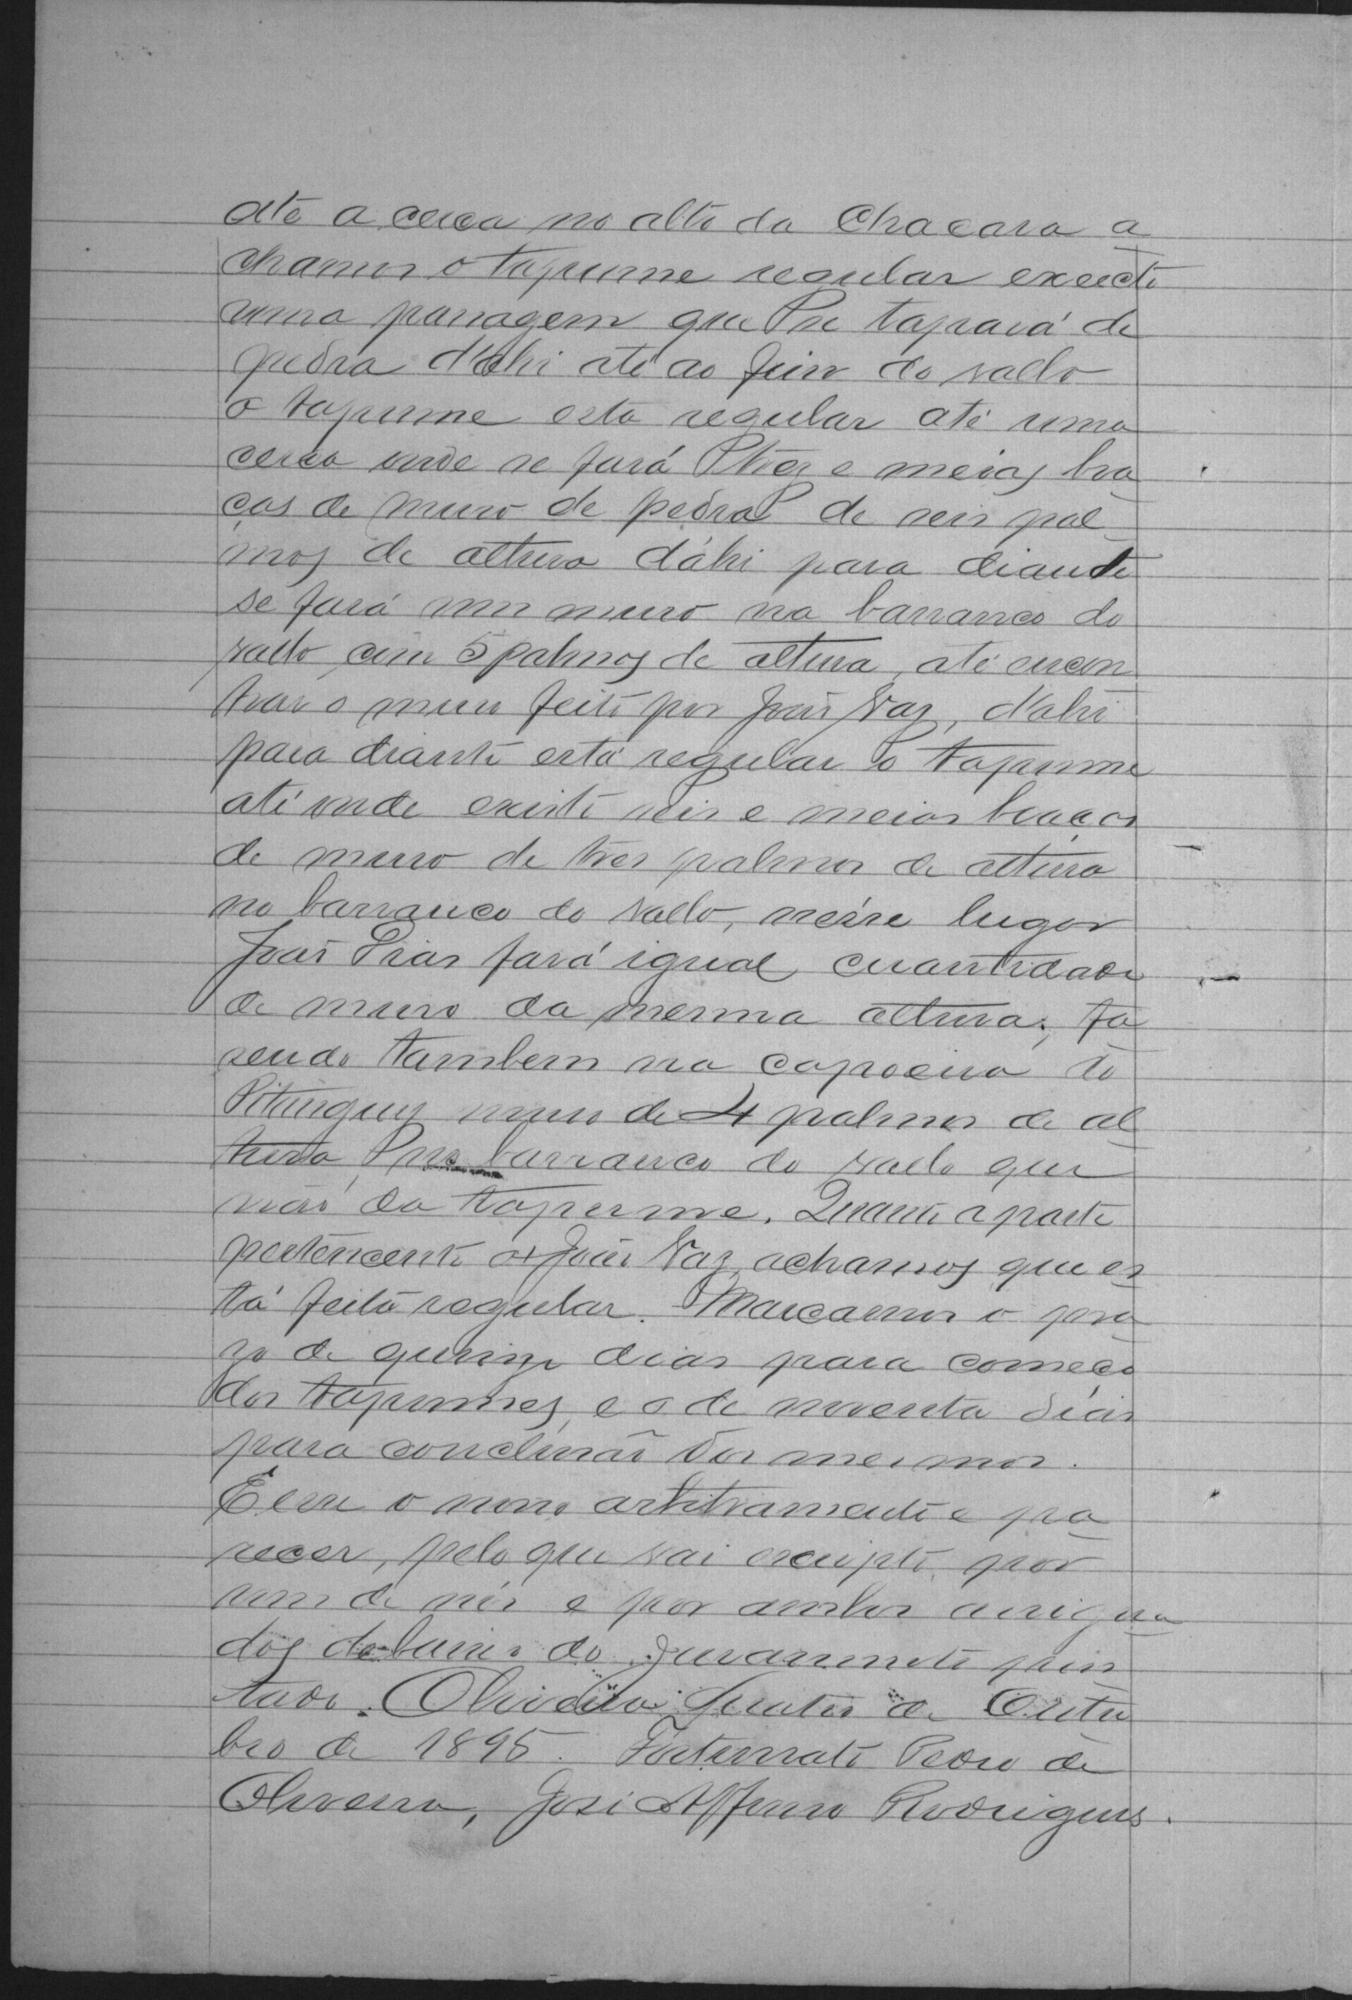 até a cerca no alto da Chacara a
chamos o tapume regular excecto
uma passagem que se tapará de
pedra d'ahi até ao fim do vallo
o tapume esta regular até uma
cerca onde se fará tres e meias bra
ças de muro de pedra de seis pal
mos de altura d'áhi para diante
se fará um muro na barranco do
vallo com 5 palmos de altura, até encon
trar o muro feito por João Vaz, d'ahi
para diante está regular o tapume
até onde existe seis e meias braças
de muro de tres palmos de altura
no barranco do vallo, nésse lugar
João Dias fará igual cuantidade
de muro da mesma altura; fa
sendo tambem na capoeira do
Pitinguy muro de 4 palmos de al
tura no barranco do vallo que
não da tapume. Quanto a parte
pertencente a João Vaz, achamos que es
tá feita regular. Marcamos o pra
zo de quinze dias para começo
dos tapumes, e o de noventa dias
para conclusão dos mesmos.
É esse o nosso arbitramento e pa
recer, pelo que vai escripto por
um de nós e por ambos assigna
dos debaixo do juramento pres
tado. Oliveira de Outu
bro de 1895. Fortunato Pedro de
Oliveira, José Affonso Rodrigues.